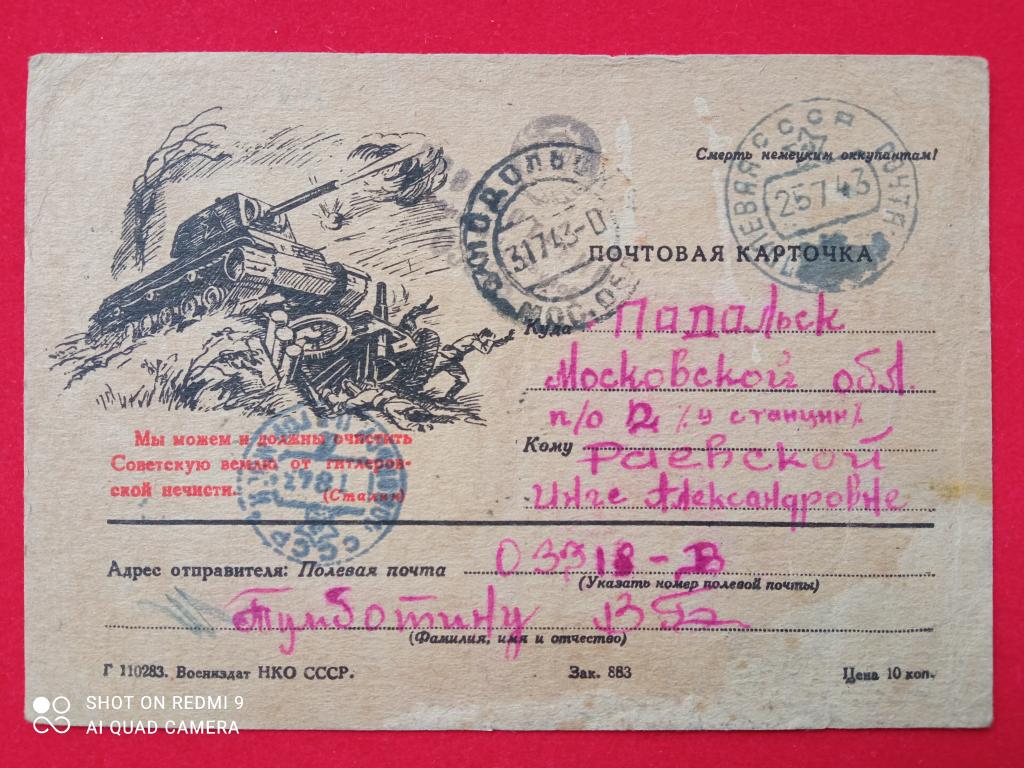 Смерть немецким оккупантам!
ПОЛЕВАЯ ПОЧТА
СССР
25 7 43
31 7 43
МОС. ОБЛ
ПОЧТОВАЯ КАРТОЧКА
Куда Падальск
Московской обл.
п/о 2 % у станции %
Кому Раевской
Инге Александровне
Мы можем и должны очистить
Советскую землю от гитлеров-
ской нечисти. (Сталин)
СССР
Адрес отправителя: Полевая почта 03318-В
(Указать номер полевой почты)
Тумботину
(Фамилия, имя и отчество)
Г 110283. Воениздат НКО СССР. Зак. 883 Цена 10 коп.
SHOT ON REDMI 9
AI QUAD CAMERA